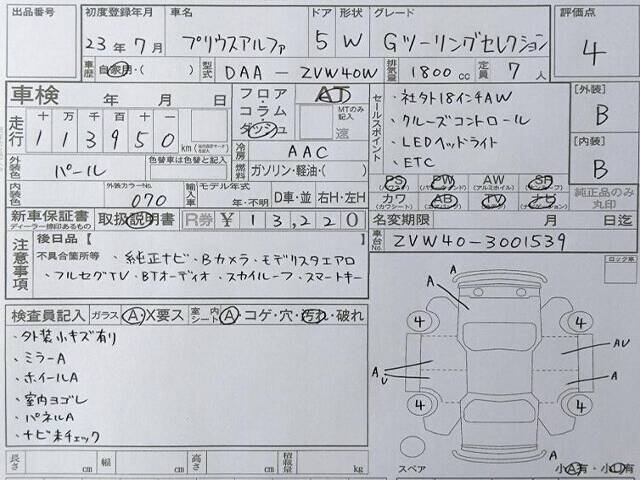 出品番号 初度登録年月 車名 ドア 形状 グレード 評価点
23年7月 プリウスアルファ 5 W Gツーリングセレクション 4
車歴 自家用・( ) 型式 DAA-ZVW40W 排気量 1800cc 定員 7人
車検 年 月 日 フロア・コラム・ダッシュ AT MTのみ記入 速
走行 十万 万 千 百 十
113950 km
外装色 パール 色替車は色替と記入
冷房 AAC
燃料 ガソリン・軽油・( )
内装色 外装カラーNo. 070 輸入車 モデル年式 年・不明 D車・並 右H・左H
セールスポイント
・社外18インチAW
・クルーズコントロール
・LEDヘッドライト
・ETC
[外装] B
[内装] B
PS PW AW SR
カワ AB TV ナビ
純正品のみ丸印
新車保証書 取扱説明書 R券 ¥13,220
ディーラー捺印あるもの
名変期限 月 日迄
車台No. ZVW40-3001539
注意事項
後日品【 】
不具合箇所等
・純正ナビ・Bカメラ・モデリスタエアロ
・フルセグTV・BTオーディオ・スカイルーフ・スマートキー
検査員記入 ガラス A・X要ス 室内シート A・コゲ・穴・汚れ・破れ
・外装小キズ有り
・ミラーA
・ホイールA
・室内ヨゴレ
・パネルA
・ナビ未チェック
ロック車
A
A
4 4
A A U AU
A
4 4
A
スペア 小A有・小U有
長さ cm 幅 cm 高さ cm 積載量 kg